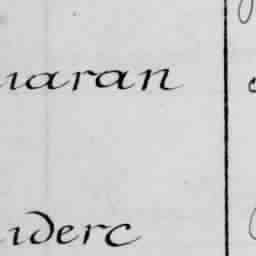 uaran
uderc